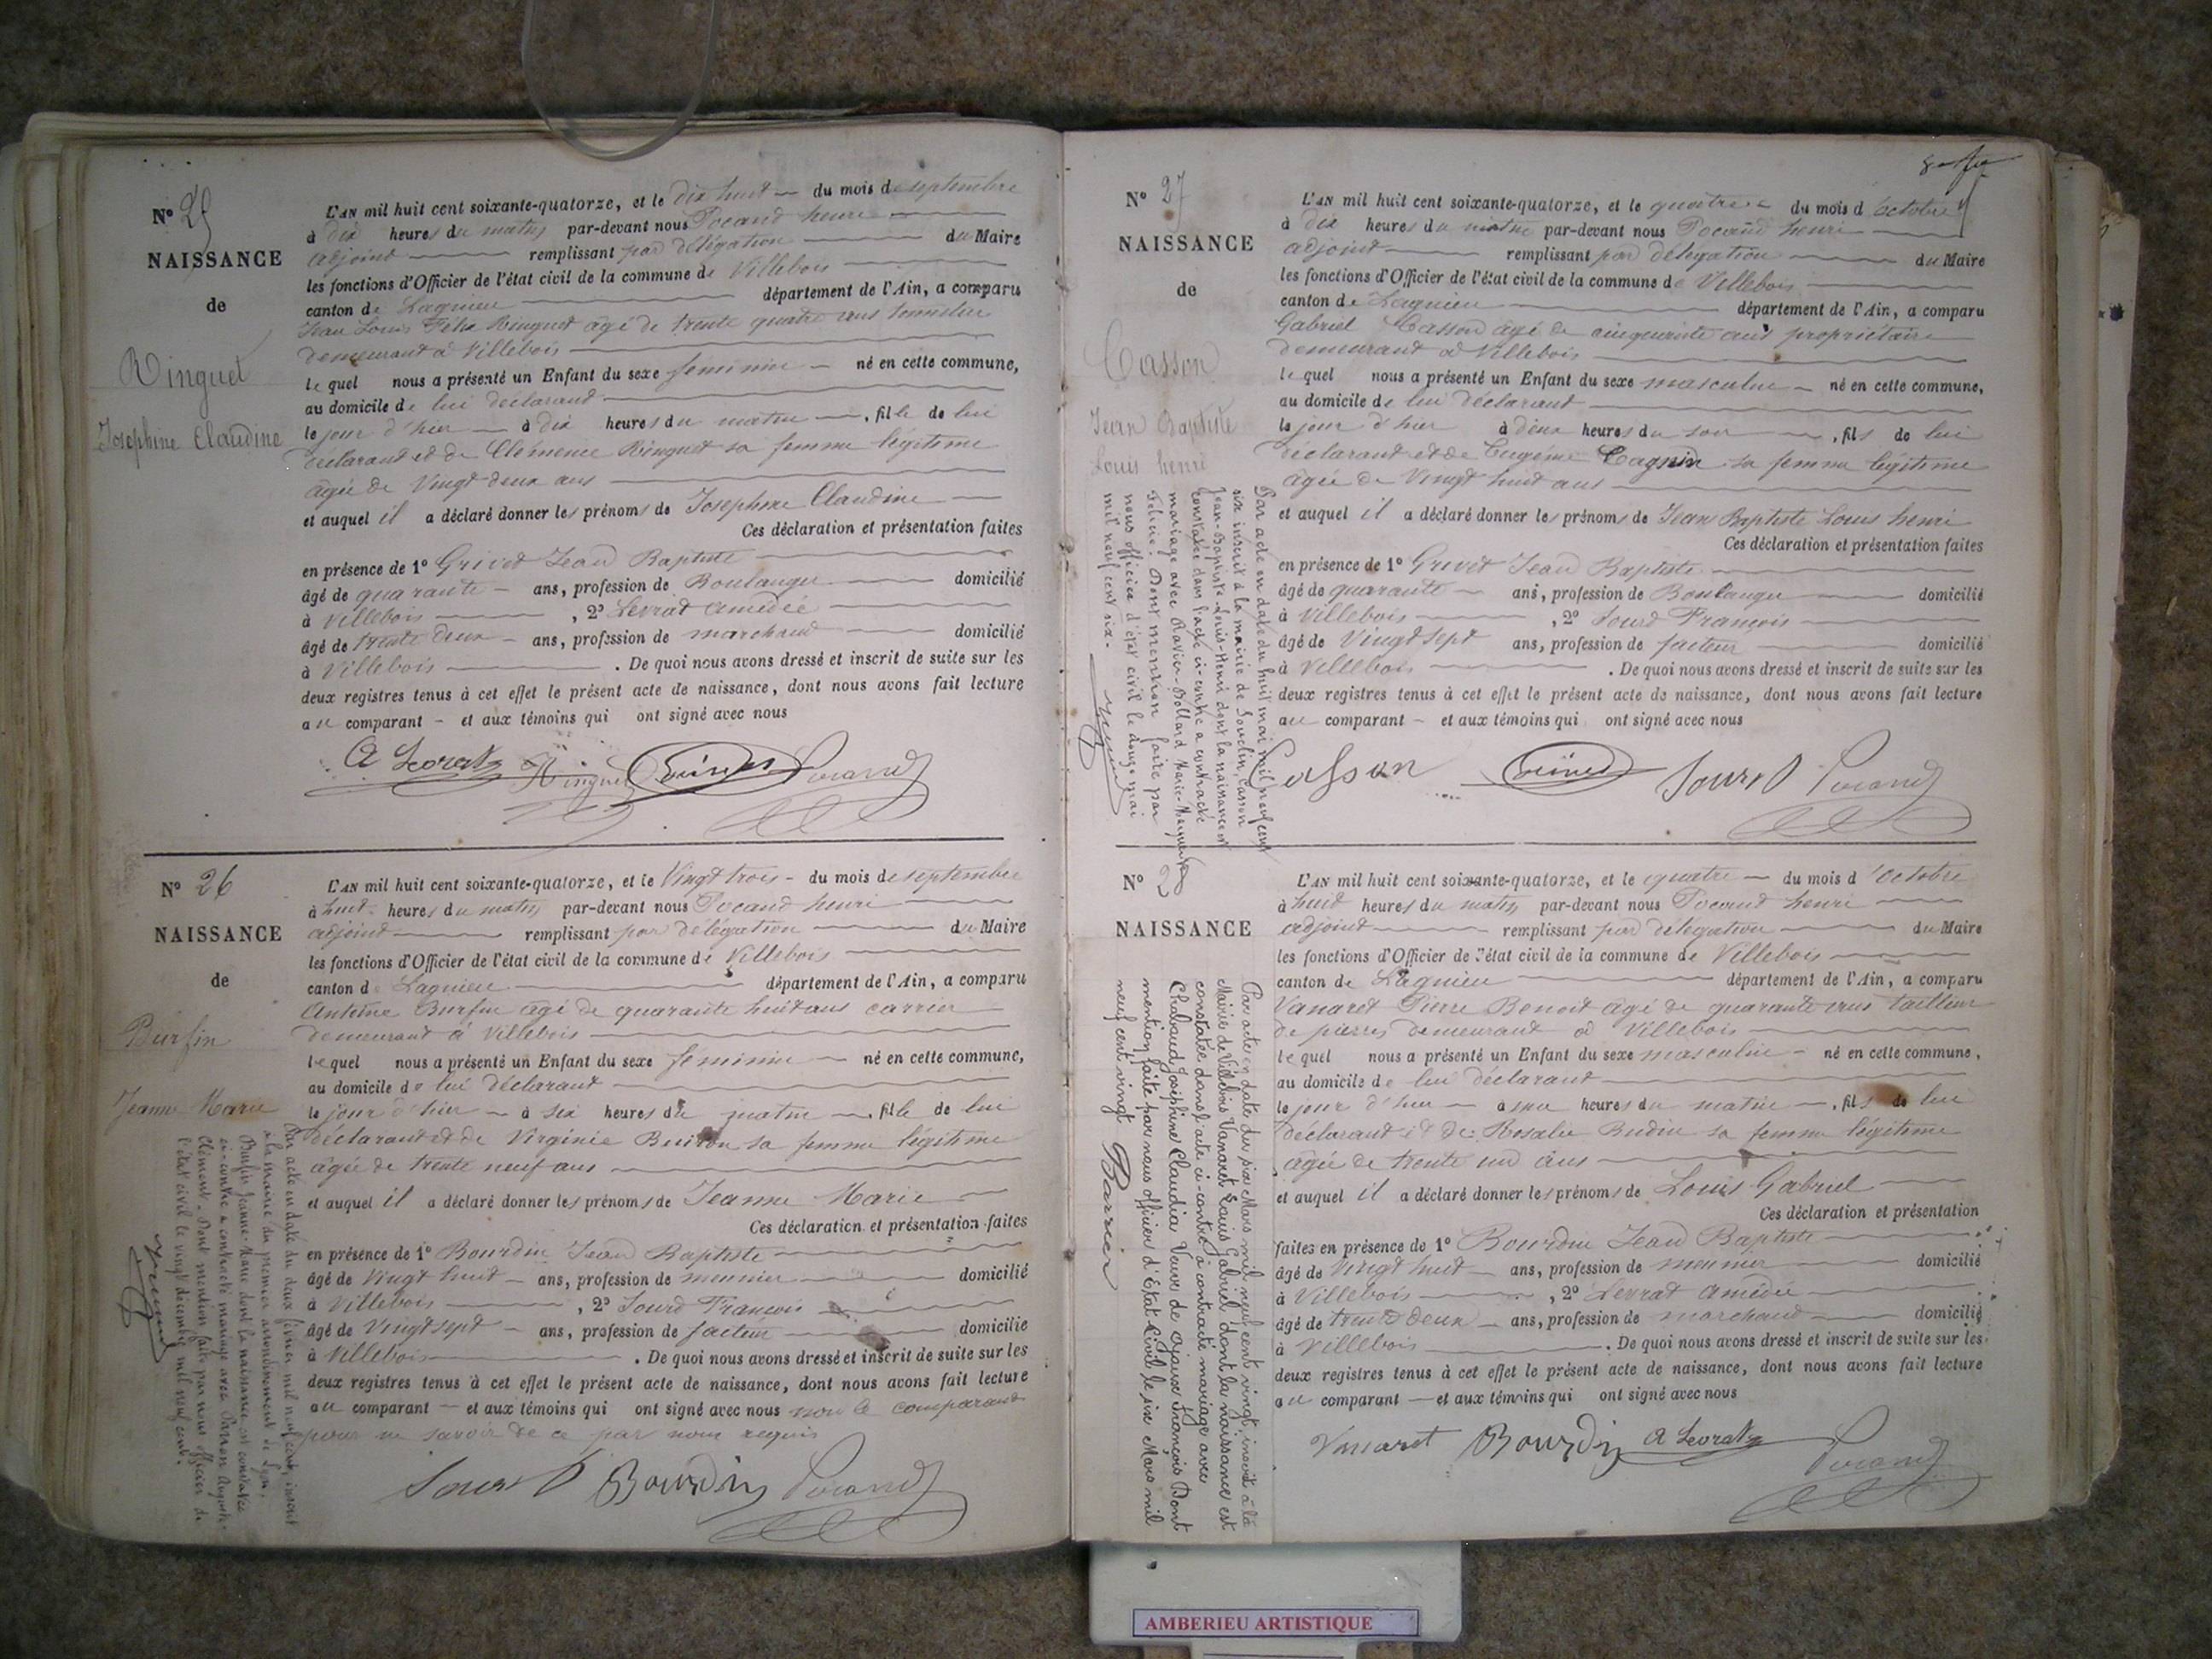 N° 25
NAISSANCE
de
Ringuet
Josephine Claudine
L'AN mil huit cent soixante-quatorze, et le dix huit du mois de septembre
à dix heures du matin par-devant nous Pocand henri
adjoint remplissant par délégation du Maire
les fonctions d'Officier de l'état civil de la commune de Villebois
canton de Lagnieu département de l'Ain, a comparu
Jean Louis Félix Ringuet âgé de trente quatre ans tonnelier
demeurant à Villebois
lequel nous a présenté un Enfant du sexe féminin né en cette commune,
au domicile de lui déclarant
le jour d'hier à dix heures du matin, fille de lui
déclarant et de Clémence Ringuet sa femme légitime
âgée de Vingt deux ans
et auquel il a déclaré donner les prénoms de Josephine Claudine
Ces déclaration et présentation faites
en présence de 1° Grivet Jean Baptiste
âgé de quarante ans, profession de Boulanger domicilié
à Villebois, 2° Levrat Amédée
âgé de trente deux ans, profession de marchand domicilié
à Villebois. De quoi nous avons dressé et inscrit de suite sur les
deux registres tenus à cet effet le présent acte de naissance, dont nous avons fait lecture
au comparant et aux témoins qui ont signé avec nous
A Levrat Ringuet Grivet Pocand
N° 26
NAISSANCE
de
Burfin
Jeanne Marie
Par acte en date du deux février mil neuf cent, inscrit
à la mairie du premier arrondissement de Lyon,
Burfin Jeanne-Marie dont la naissance est constatée
ci-contre a contracté mariage avec Perron Auguste-
Clément. Dont mention faite par nous officier de
l'état civil le vingt décembre mil neuf cent.
L'AN mil huit cent soixante-quatorze, et le Vingt trois du mois de septembre
à huit heures du matin par-devant nous Pocand henri
adjoint remplissant par délégation du Maire
les fonctions d'Officier de l'état civil de la commune de Villebois
canton de Lagnieu département de l'Ain, a comparu
Antoine Burfin âgé de quarante huit ans carrier
demeurant à Villebois
lequel nous a présenté un Enfant du sexe féminin né en cette commune,
au domicile de lui déclarant
le jour d'hier à six heures du matin, fille de lui
déclarant et de Virginie Buiron sa femme légitime
âgée de trente neuf ans
et auquel il a déclaré donner les prénoms de Jeanne Marie
Ces déclaration et présentation faites
en présence de 1° Bourdin Jean Baptiste
âgé de Vingt huit ans, profession de meunier domicilié
à Villebois, 2° Sourd François
âgé de Vingt sept ans, profession de facteur domicilié
à Villebois. De quoi nous avons dressé et inscrit de suite sur les
deux registres tenus à cet effet le présent acte de naissance, dont nous avons fait lecture
au comparant et aux témoins qui ont signé avec nous non le comparant
pour ne savoir de ce par nous requis
Sourd Bourdin Pocand
N° 27
NAISSANCE
de
Casson
Jean Baptiste
Louis henri
Par acte en date du huit mai mil neuf cent
six inscrit à la mairie de Souclin, Casson
Jean-Baptiste-Louis-Henri dont la naissance est
constatée dans l'acte ci-contre a contracté
mariage avec Ravier-Bollard Marie-Marguerite
Félicie. Dont mention faite par
nous officier d'état civil le douze mai
mil neuf cent six.
L'AN mil huit cent soixante-quatorze, et le quatre du mois d'octobre
à dix heures du matin par-devant nous Pocand henri
adjoint remplissant par délégation du Maire
les fonctions d'Officier de l'état civil de la commune de Villebois
canton de Lagnieu département de l'Ain, a comparu
Gabriel Casson âgé de cinquante ans propriétaire
demeurant à Villebois
lequel nous a présenté un Enfant du sexe masculin né en cette commune,
au domicile de lui déclarant
le jour d'hier à deux heures du soir, fils de lui
déclarant et de Eugénie Cagnin sa femme légitime
âgée de Vingt huit ans
et auquel il a déclaré donner les prénoms de Jean Baptiste Louis henri
Ces déclaration et présentation faites
en présence de 1° Grivet Jean Baptiste
âgé de quarante ans, profession de Boulanger domicilié
à Villebois, 2° Sourd François
âgé de Vingt sept ans, profession de facteur domicilié
à Villebois. De quoi nous avons dressé et inscrit de suite sur les
deux registres tenus à cet effet le présent acte de naissance, dont nous avons fait lecture
au comparant et aux témoins qui ont signé avec nous
Casson Grivet Sourd Pocand
N° 28
NAISSANCE
Par acte en date du six Mars mil neuf cent vingt, inscrit à la
Mairie de Villebois Vanaret Louis Gabriel dont la naissance est
constatée dans l'acte ci-contre à contracté mariage avec
Chabaud Joséphine Claudia Veuve de Ojave François Dont
mention faite par nous officier d'Etat-Civil le six Mars mil
neuf cent vingt Barrier
L'AN mil huit cent soixante-quatorze, et le quatre du mois d'Octobre
à huit heures du matin par-devant nous Pocand henri
adjoint remplissant par délégation du Maire
les fonctions d'Officier de l'état civil de la commune de Villebois
canton de Lagnieu département de l'Ain, a comparu
Vanaret Pierre Benoit âgé de quarante ans tailleur
de pierres demeurant à Villebois
lequel nous a présenté un Enfant du sexe masculin né en cette commune,
au domicile de lui déclarant
le jour d'hier à heures du matin, fils de lui
déclarant et de Rosalie Budin sa femme légitime
âgée de trente un ans
et auquel il a déclaré donner les prénoms de Louis Gabriel
Ces déclaration et présentation
faites en présence de 1° Bourdin Jean Baptiste
âgé de Vingt huit ans, profession de meunier domicilié
à Villebois, 2° Levrat Amédée
âgé de trente deux ans, profession de marchand domicilié
à Villebois. De quoi nous avons dressé et inscrit de suite sur les
deux registres tenus à cet effet le présent acte de naissance, dont nous avons fait lecture
au comparant et aux témoins qui ont signé avec nous
Vanaret Bourdin A Levrat Pocand
AMBERIEU ARTISTIQUE